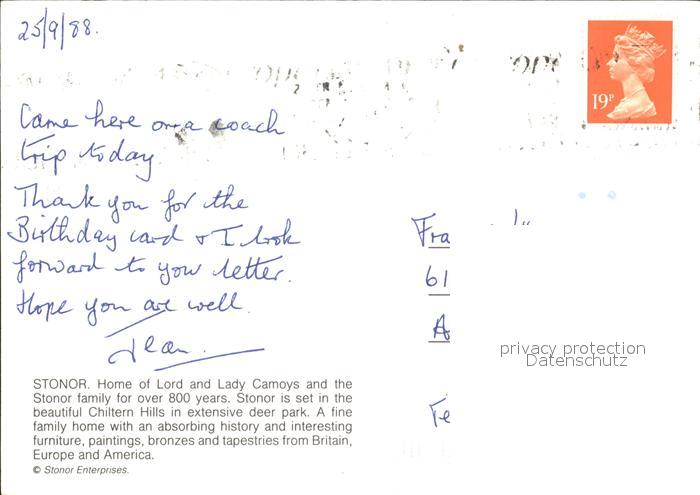 25/9/88.
19P
Came here on a coach
trip today
Thank you for the
Birthday card & I look
forward to your letter.
Hope you are well.
Jean.
Fra
61
A
Te
privacy protection
Datenschutz
STONOR. Home of Lord and Lady Camoys and the
Stonor family for over 800 years. Stonor is set in the
beautiful Chiltern Hills in extensive deer park. A fine
family home with an absorbing history and interesting
furniture, paintings, bronzes and tapestries from Britain,
Europe and America.
© Stonor Enterprises.